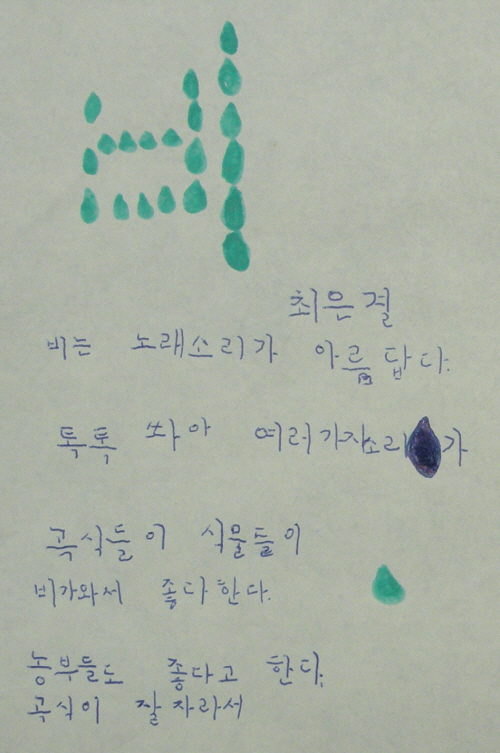 비
최은결
비는 노래소리가 아름답다.
톡톡 쏴아 여러가지소리가
곡식들이 식물들이
비가와서 좋다한다.
농부들도 좋다고 한다.
곡식이 잘 자라서